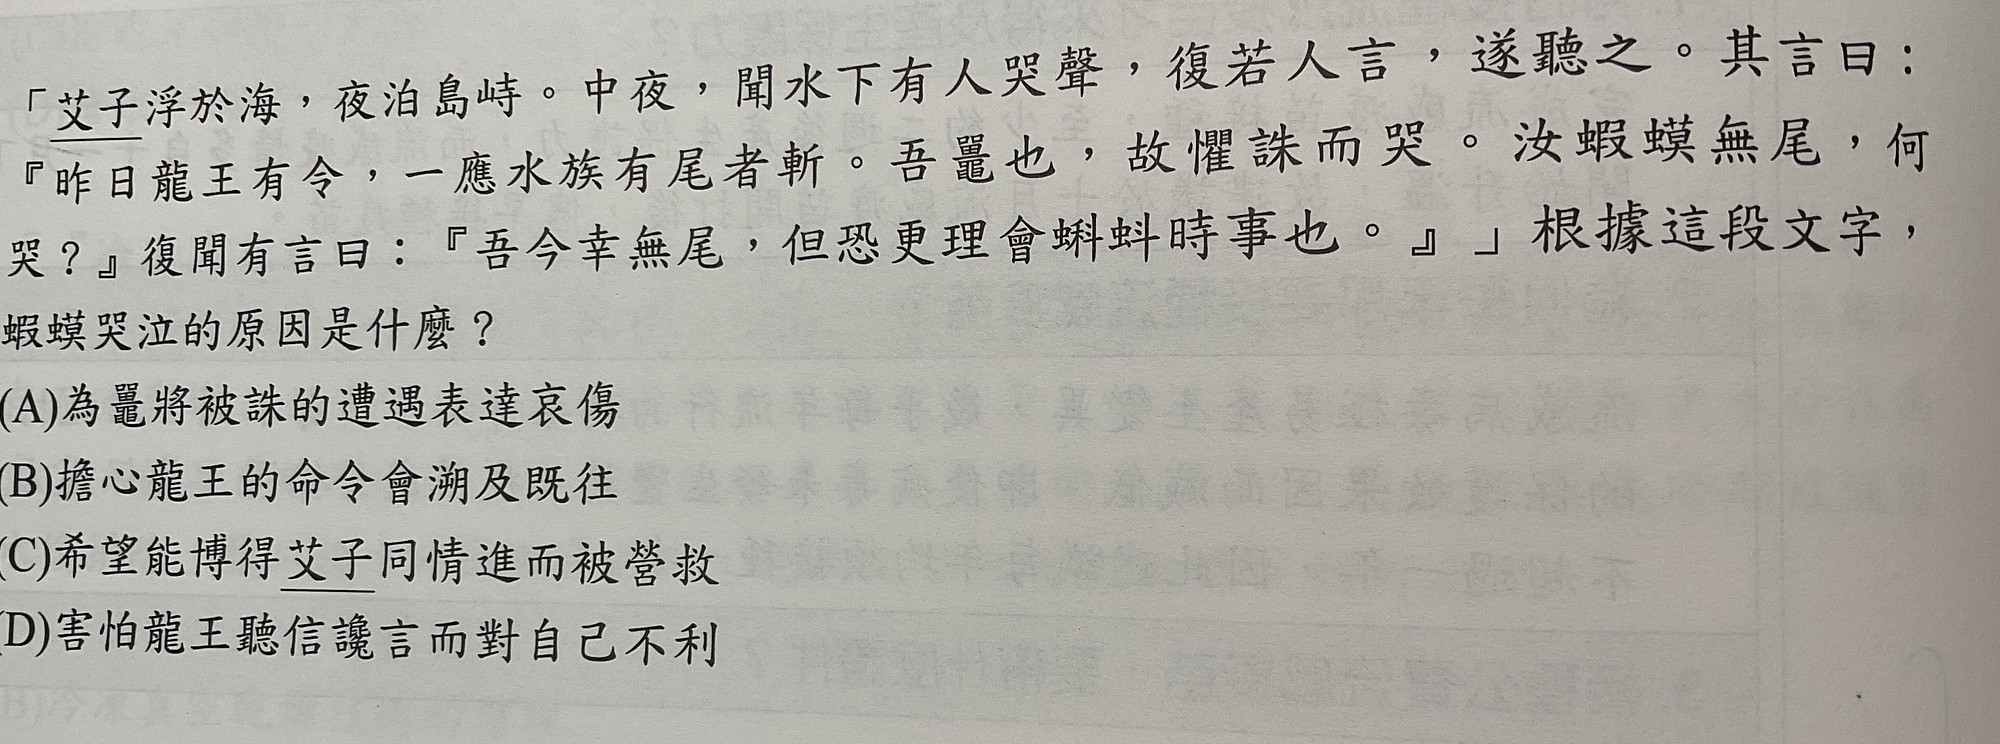 「艾子浮於海，夜泊島峙。中夜，聞水下有人哭聲，復若人言，遂聽之。其言曰：
『昨日龍王有令，一應水族有尾者斬。吾鼉也，故懼誅而哭。汝蝦蟆無尾，何
哭？』復聞有言曰：『吾今幸無尾，但恐更理會蝌蚪時事也。』」根據這段文字，
蝦蟆哭泣的原因是什麼？
(A)為鼉將被誅的遭遇表達哀傷
(B)擔心龍王的命令會溯及既往
(C)希望能博得艾子同情進而被營救
(D)害怕龍王聽信讒言而對自己不利